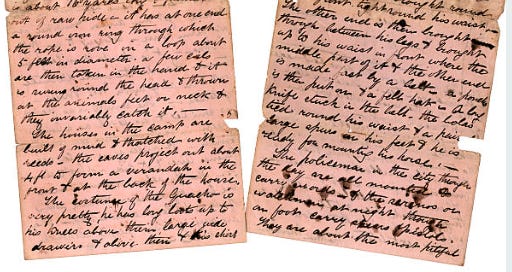 about 18 years
out of raw hide – it has at one end
a round iron ring through which
the rope is rove on a loop about
5 feet in diameter. a few coils
are then taken in the hand & it
is swung round the head & thrown
at the animals feet or neck &
they invariably catch it —
The houses in the camp are
built of mud & thatched with
reeds – the eaves project out about
4 ft to form a verandah in the
front & at the back of the house.
The costume of the Guacho is
very pretty, he has long boots up to
his knees above them large wide
drawers & above them & his shirt
round his waist –
The other end is then brought
through between his legs & brought
up to his waist in front where the
middle part of it & the other end
is made fast by a belt a poncho
is then put on & a felt hat. A long
knife stuck in the belt, the
tied round his waist & a pair
large spurs on his feet & he is
ready for mounting his horse. –
The policemen in the city though
the day are all mounted &
carry swords – & the serenos or
watchmen at night though
on foot carry pistols.
They are about the most pitiful